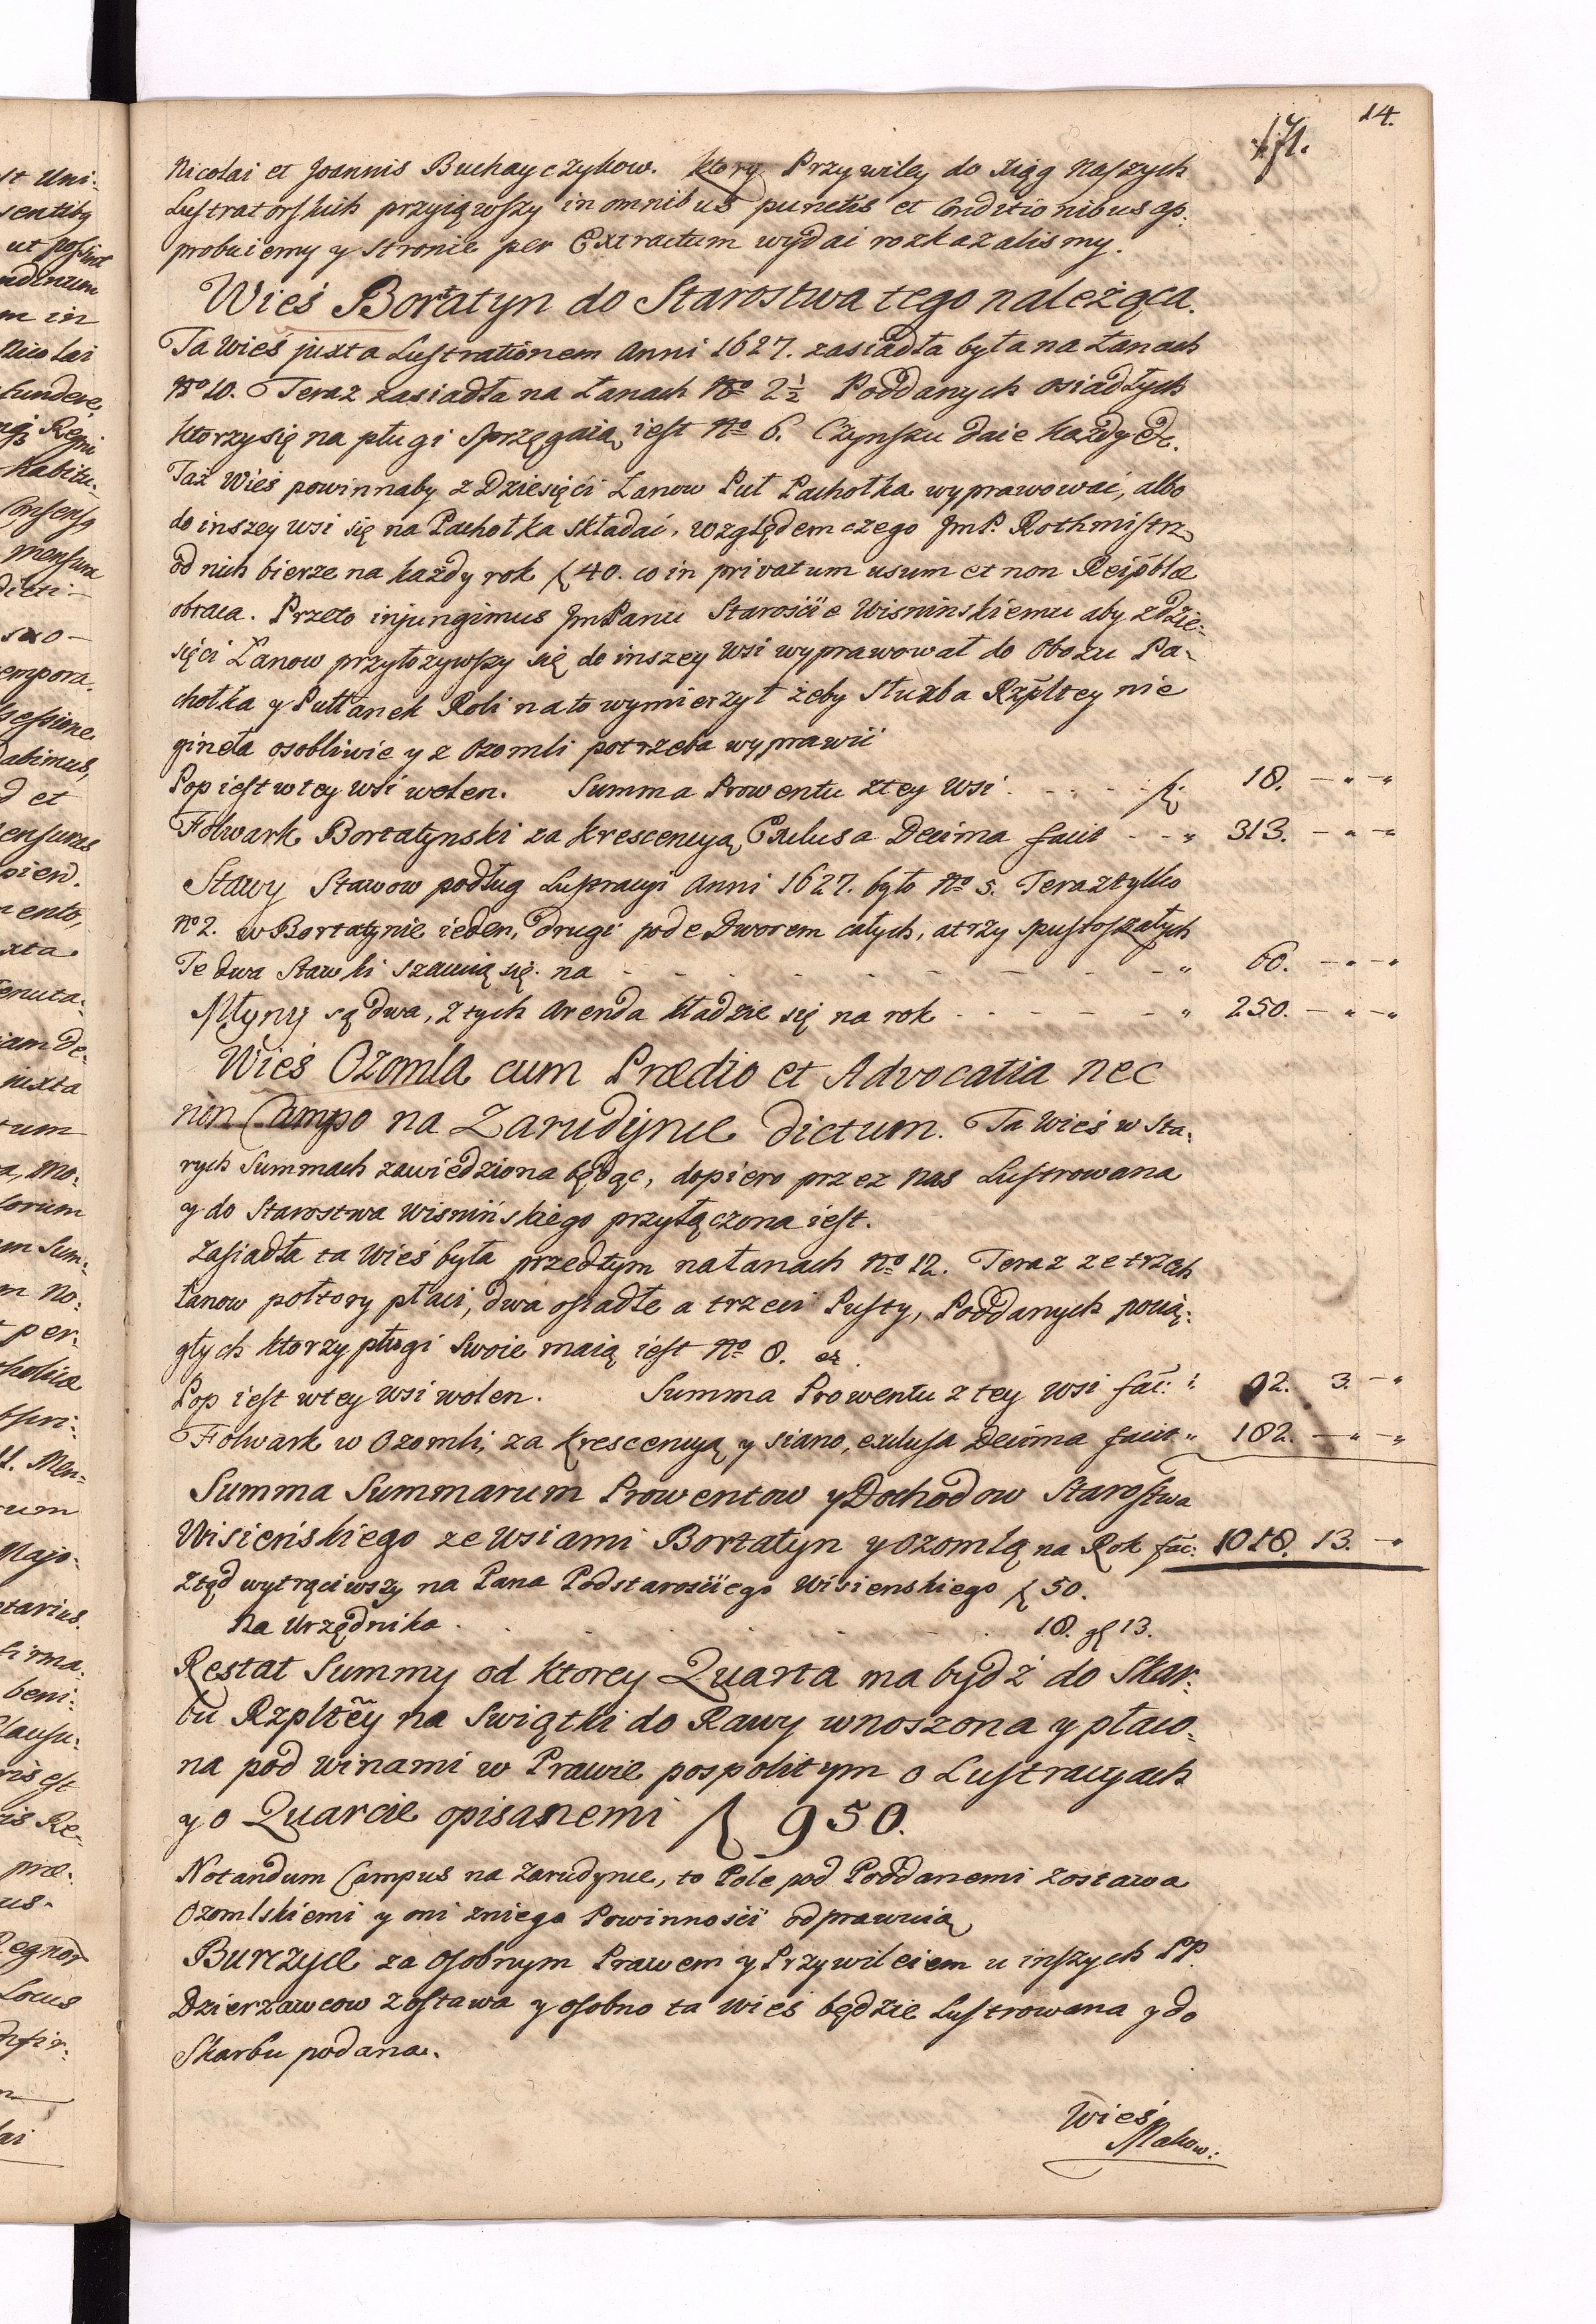 14.
171.
Nicolai et Joannis Buchayczykow. ktory Przywiley do Xiąg Naszych
Lustratorskich przyiąwszy in omnibus punctis et Conditionibus ap:
probuiemy y stronie per Extractum wydać rozkazalismy.
Wieś Bortatyn do Starostwa tego należąca.
Ta Wieś juxta Lustrationem Anni 1627. zasiadła była na Łanach
No 10. Teraz zasiadła na Łanach No 2½ Poddanych osiadłych
ktorzy się na pługi sprzęgaią iest No 6. Czynszu daie każdy &c.
Taż Wieś powinnaby z Dziesięći Łanow Puł Pachołka wyprawować, albo
do inszey wsi się na Pachołka składać, względem czego JmP. Rothmistrz
od nich bierze na każdy rok f 40. co in privatum usum et non Reipblæ
obraca. Przeto injungimus JmPanu Starościе Wisninskiemu aby zdzie:
sięci Łanow przyłożywszy się do inszey wsi wyprawował do Obozu Pa:
chołka y Pułłanek Roli nato wymierzył żeby służba Rzpltey nie
gineła osobliwie y z Ozomli potrzeba wyprawić
Pop iest w tey wsi wolen. Summa Prowentu z tey Wsi . - - - - f. 18. — " — "
Folwark Bortatynski za krescencyą Exclusa Decima facit - - " 313. — " — "
Stawy Stawow podług Lustracyi Anni 1627. było No 5. Teraz tylko
No 2. w Bortatynie ieden, drugi pode Dworem całych, a trzy spustoszałych
Te dwa Stawki szacuią się na - - - - - - - - " 60. — " — "
Młyny są dwa, z tych Arenda kładzie się na rok - - - - - " 250. — " — "
Wieś Ozomla cum Prædio et Advocatia nec
non Campo na Zarudyńcu dictum. Ta Wieś w Sta:
rych Summach zawiedziona będąc, dopiero przez nas Lustrowana
y do Starostwa Wisnińskiego przyłączona iest.
Zasiadła ta Wieś była przedtym na łanach No 12. Teraz ze trzech
Łanow połtory płaci, dwa osiadłe a trzeci Pusty, Poddanych pocią:
głych ktorzy pługi swoie maią iest No 8. &
Pop iest w tey wsi wolen. Summa Prowentu z tey wsi fac: " 92. 3. — "
Folwark w Ozomli, za krescencyą y siano, exclusa Decima facit " 182. — " — "
Summa Summarum Prowentow y Dochodow Starostwa
Wisieńskiego ze Wsiami Bortatyn y Ozomlą na Rok fac: 1018. 13. — "
Ztąd wytrąciwszy na Pana Podstarościego Wisienskiego f 50.
Na Urzędnika . . . . . . . 18. gl 13.
Restat Summy od ktorey Quarta ma bydź do Skar:
bu Rzpltey na Swiątki do Rawy wnoszona y płaco:
na pod winami w Prawie pospolitym o Lustracyach
y o Quarcie opisanemi f 950.
Notandum Campus na Zarudyńcu, to Pole pod Poddanemi zostawa
Ozomlskiemi y oni z niego Powinności odprawuią
Burczyce za Osobnym Prawem y Przywileiem u inszych PP.
Dzierzawcow zostawa y osobno ta Wieś będzie Lustrowana y do
Skarbu podana.
Wieś
Makow: